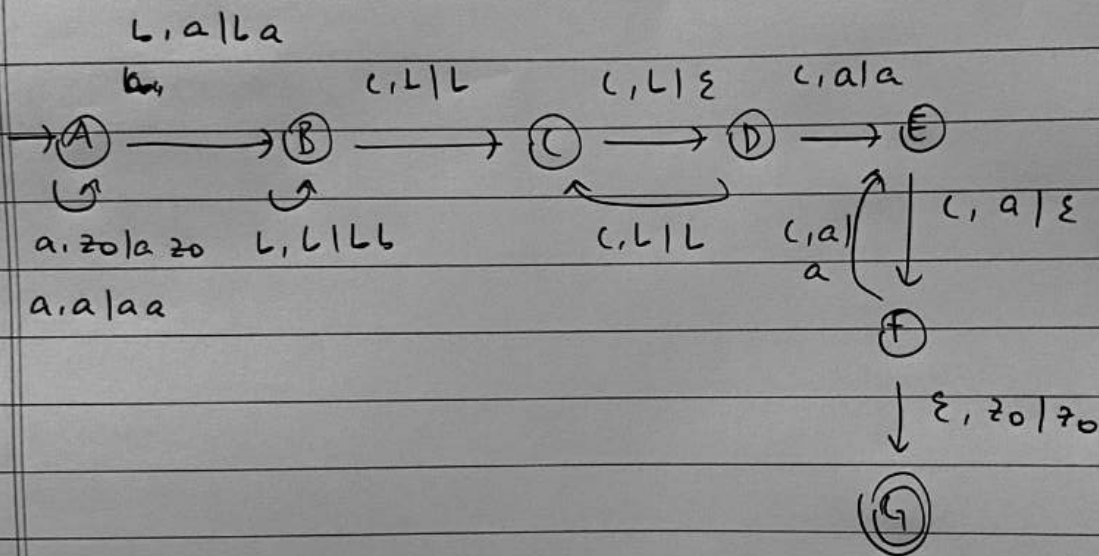 b, a | b a
c, b | b c, b | ε c, a | a
A B C D E
a, z0 | a z0 b, b | b b c, b | b c, a | a c, a | ε
a, a | a a
F
ε, z0 | z0
G